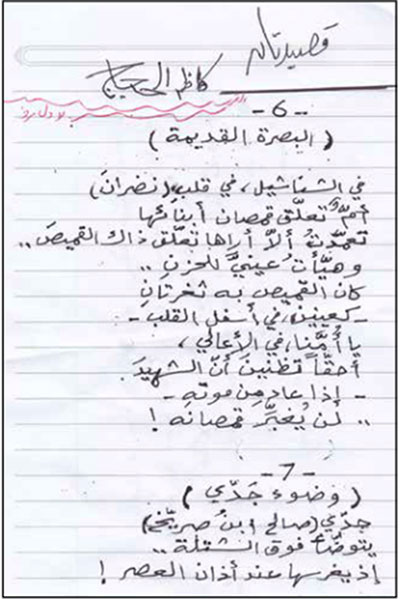 قصيدتان
كاظم الحجاج
- 6 -
( البصرة القديمة )
في الشناشيل، في قلب (نضران)
أمٌّ تعلّق قمصان أبنائها
تعمّدتُ ألاّ أراها تعلّق ذاك القميصَ ..
وهيّأتُ عينيَّ للحزنِ ..
كان القميص به ثغرتانِ
- كعينين، في أسفل القلب -
يا أمَّنا، في الأعالي ،
أحقاً تظنينَ أنّ الشهيدَ
- إذا عاد من موته -
.. لن يُغيِّر قمصانَه !
- 7 -
( وضوء جَدّي )
جدّي (صالح ابنُ صريّخ)
يتوضّأ فوق الشتلة ..
إذ يغرسها عند أذان العصر !